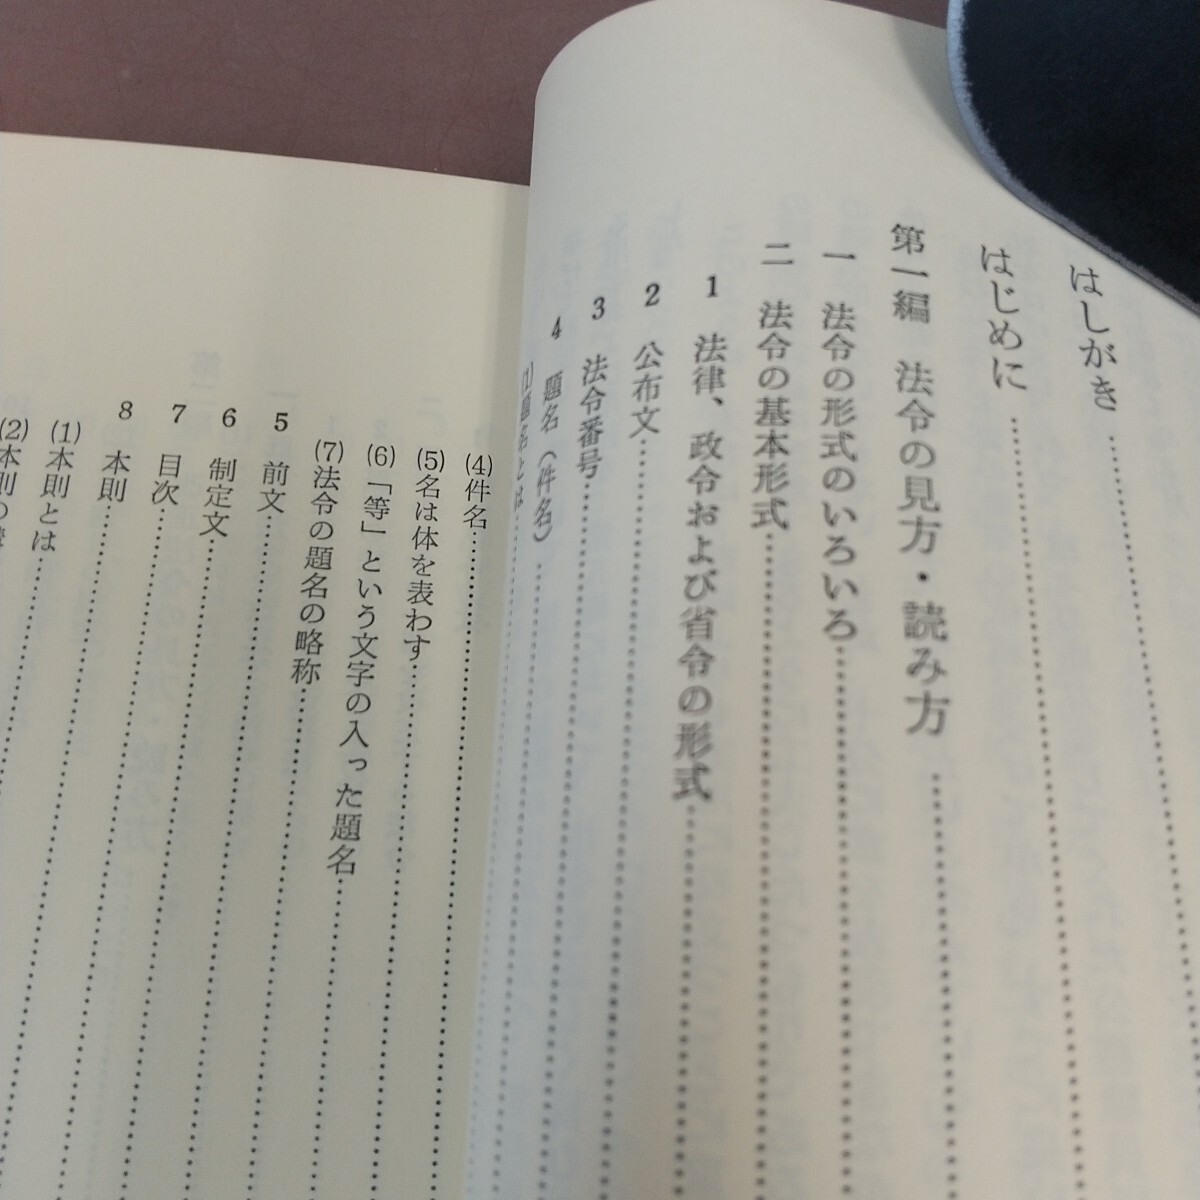 はしがき
はじめに
第一編 法令の見方・読み方
一 法令の形式のいろいろ
二 法令の基本形式
1 法律、政令および省令の形式
2 公布文
3 法令番号
4 題名（件名）
(1)題名とは
(4)件名
(5)名は体を表わす
(6)「等」という文字の入った題名
(7)法令の題名の略称
5 前文
6 制定文
7 目次
8 本則
(1)本則とは
(2)本則の